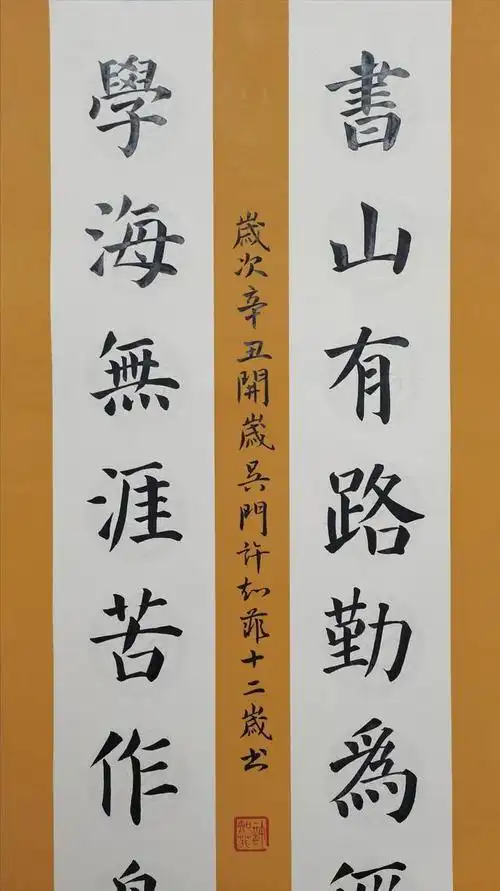 書山有路勤為徑
學海無涯苦作
歲次辛丑開歲吳門許知菲十二歲書